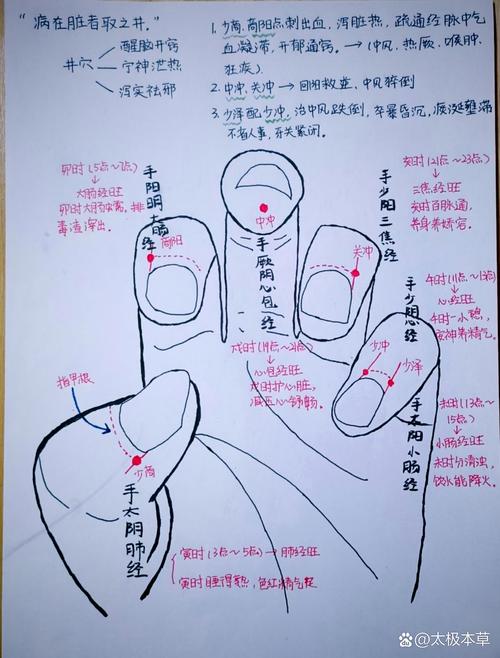 "病在脏者取之井."
井穴
醒脑开窍
宁神泄热
泻实祛邪
1. 少商,商阳点刺出血,泻脏热,疏通经脉中气
血凝滞,开郁通窍. → (中风,热厥,喉肿,
狂疾).
2. 中冲,关冲 → 回阳救逆,中风猝倒
3. 少泽配少冲,治中风跌倒,卒暴昏沉,痰涎壅滞
不省人事,牙关紧闭.
卯时(5点~7点)
大肠经旺
卯时大肠蠕,排
毒渣滓出.
手阳明大肠经
商阳
中冲
手厥阴心包经
手少阳三焦经
关冲
亥时(21点~23点)
三焦经旺
亥时百脉通,
养身养娇容.
午时(11点~13点)
心经旺
午时一小憩,
安神养精气.
手少阴心经
少冲
少泽
手太阳小肠经
戌时(19点~21点)
心包经旺
戌时护心脏,
减压心舒畅.
未时(13点~
15点)
小肠经旺
未时分清浊,
饮水能降火.
指甲根
少商
手太阴肺经
寅时(3点~5点) → 肺经旺
寅时睡得熟,色红精气足
百家号@太极本草